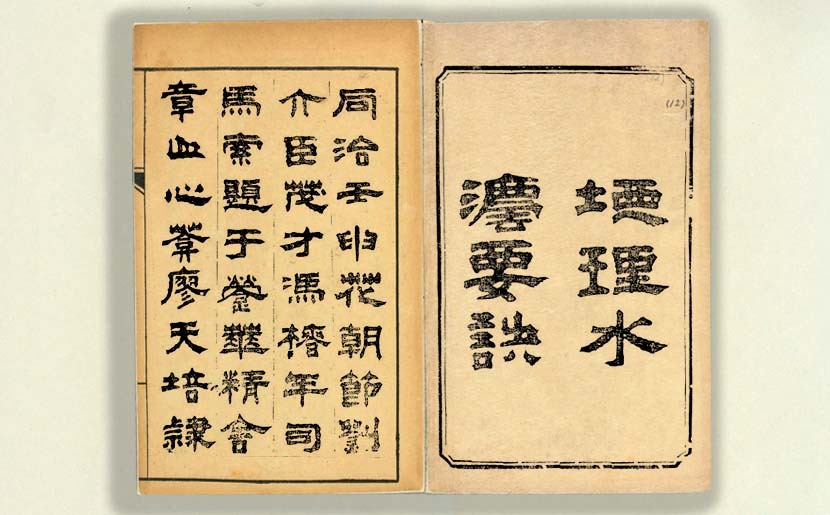 (12)
地理水
灋要訣
同治壬申花朝節劉
介臣茂才馮年司
馬索題于華精舍
章血心葊廖天培隸